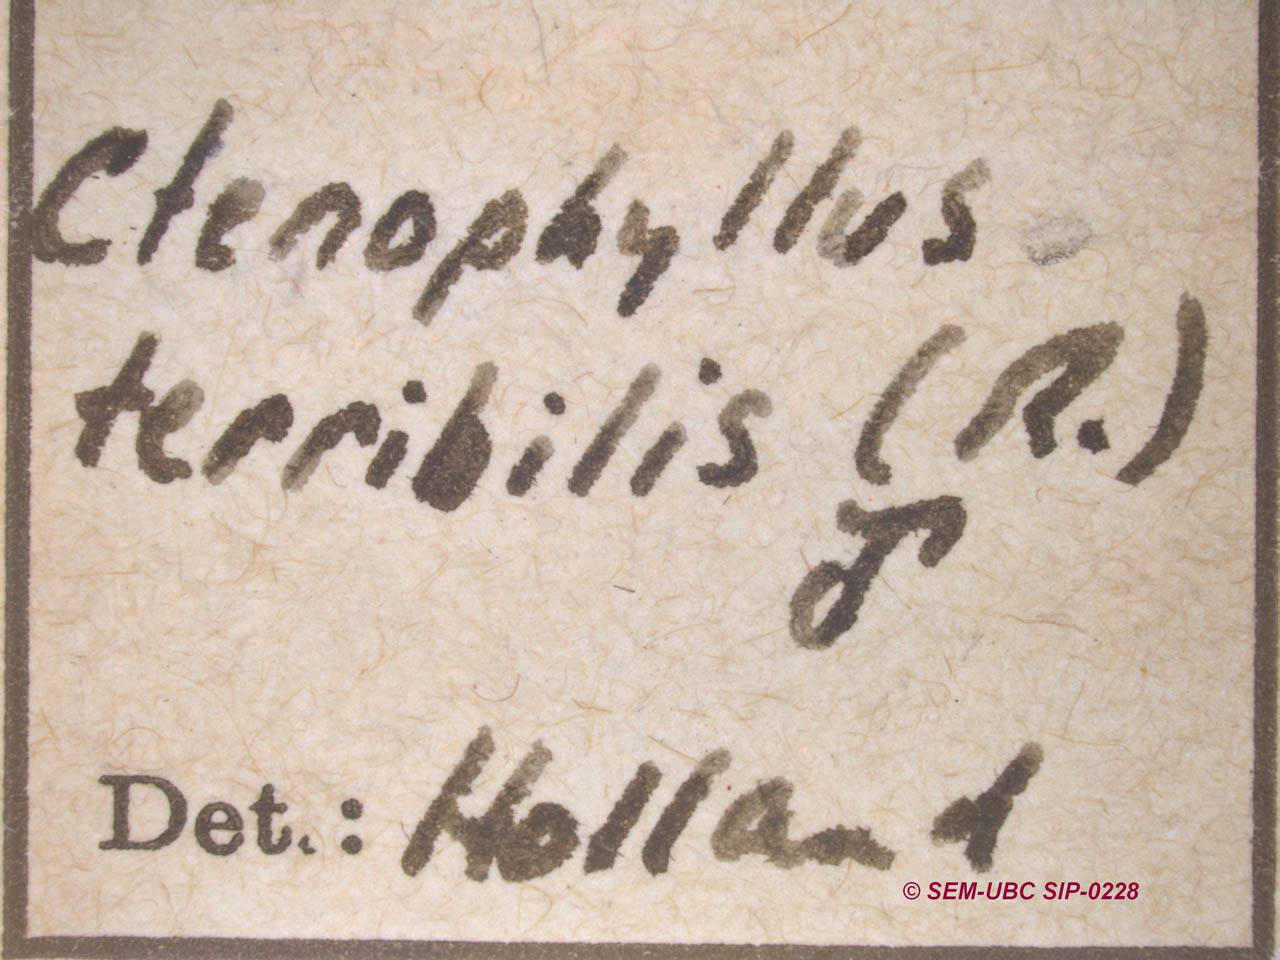 Ctenophyllus
terribilis (R.)
♂
Det.: Holland
© SEM-UBC SIP-0228